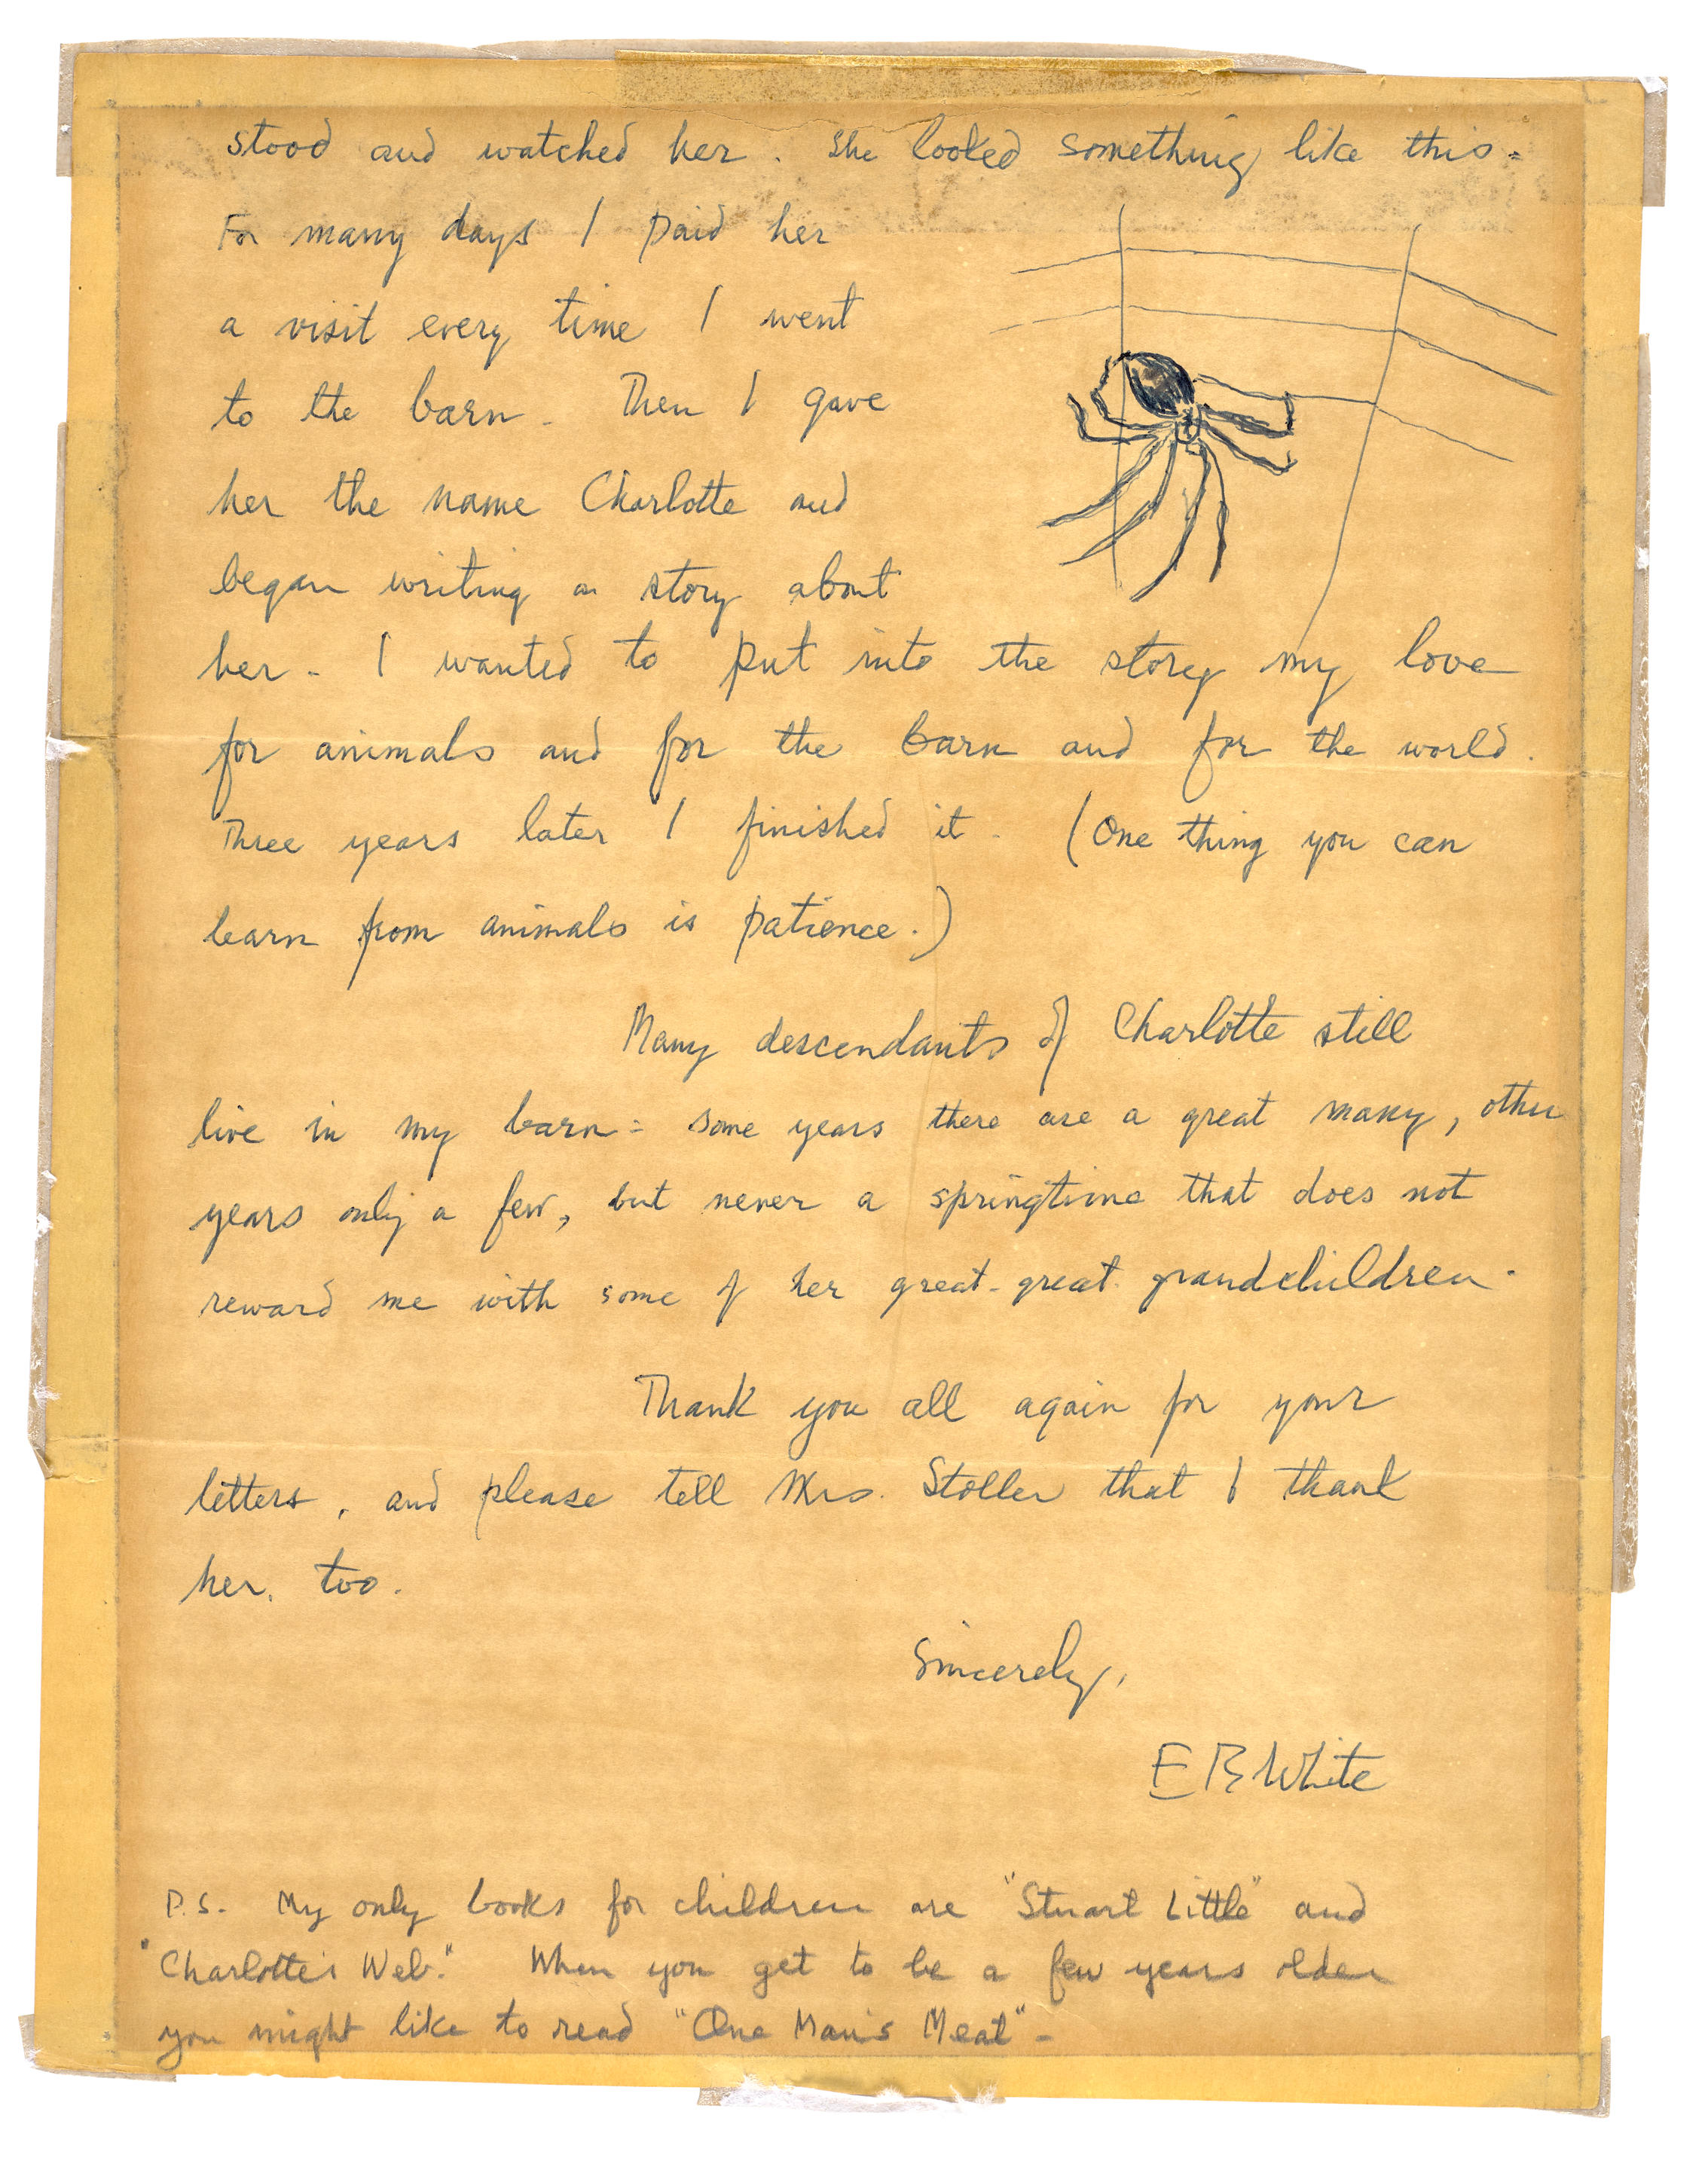 stood and watched her. She looked something like this -
For many days I paid her
a visit every time I went
to the barn. Then I gave
her the name Charlotte and
began writing a story about
her. I wanted to put into the story my love
for animals and for the barn and for the world.
Three years later I finished it. (One thing you can
learn from animals is patience.)
Many descendants of Charlotte still
live in my barn - some years there are a great many, other
years only a few, but never a springtime that does not
reward me with some of her great-great-grandchildren.
Thank you all again for your
letters, and please tell Mrs. Stoller that I thank
her, too.
Sincerely,
E B White
P.S. My only books for children are "Stuart Little" and
"Charlotte's Web." When you get to be a few years older
you might like to read "One Man's Meat" -